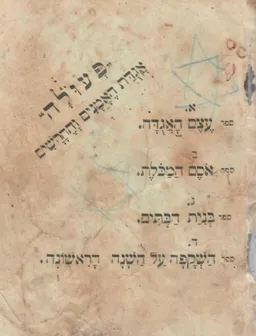 "פעולה"
אגדת האמנים והחרשים
א.
ספר עֶצֶם הָאֲגֻדָּה.
ב.
ספר אֹסֶם הַמַּכֹּלֶת.
ג.
ספר בְּנִיַּת הַבָּתִּים.
ד.
ספר הַשְׁקָפָה עַל הַשָּׁנָה הָרִאשׁוֹנָה.